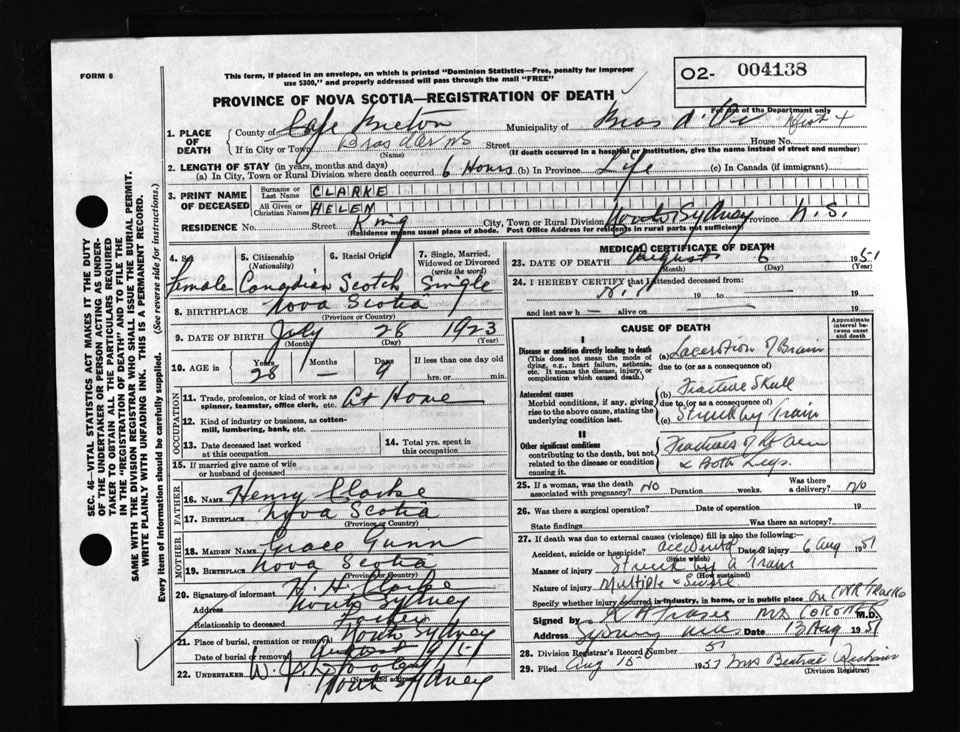 FORM 6
This form, if placed in an envelope, on which is printed "Dominion Statistics—Free, penalty for improper
use $300," and properly addressed will pass through the mail "FREE"
O2- 004138
For use of the Department only
PROVINCE OF NOVA SCOTIA—REGISTRATION OF DEATH
1. PLACE OF DEATH
County of Cape Breton Municipality of Bras d'Or Dist 4
If in City or Town Bras d'or NS Street House No.
(Name) (If death occurred in a hospital or institution, give the name instead of street and number)
2. LENGTH OF STAY (in years, months and days)
(a) In City, Town or Rural Division where death occurred 6 Hours (b) In Province Life (c) In Canada (if immigrant)
3. PRINT NAME OF DECEASED
Surname or Last Name CLARKE
All Given or Christian Names HELEN
RESIDENCE No. Street King City, Town or Rural Division North Sydney Province N.S.
(Residence means usual place of abode. Post Office Address for residents in rural parts not sufficient)
4. Sex 5. Citizenship (Nationality) 6. Racial Origin 7. Single, Married, Widowed or Divorced (write the word)
Female Canadian Scotch Single
8. BIRTHPLACE Nova Scotia
(Province or Country)
9. DATE OF BIRTH July 28 1923
(Month) (Day) (Year)
10. AGE in Years Months Days If less than one day old
28 — 9 hrs. or min.
OCCUPATION
11. Trade, profession, or kind of work as spinner, teamster, office clerk, etc. At Home
12. Kind of industry or business, as cotton-mill, lumbering, bank, etc.
13. Date deceased last worked at this occupation
14. Total yrs. spent in this occupation
15. If married give name of wife or husband of deceased
FATHER
16. NAME Henry Clarke
17. BIRTHPLACE Nova Scotia
(Province or Country)
MOTHER
18. MAIDEN NAME Grace Gunn
19. BIRTHPLACE Nova Scotia
(Province or Country)
20. Signature of informant H. H. Clarke
Address North Sydney
Relationship to deceased Father
21. Place of burial, cremation or removal North Sydney
Date of burial or removal August 9/51
22. UNDERTAKER W.
(Name and address)
North Sydney
MEDICAL CERTIFICATE OF DEATH
23. DATE OF DEATH August 6 1951
(Month) (Day)
24. I HEREBY CERTIFY that I attended deceased from:
19 to 19
and last saw h — alive on — 19
CAUSE OF DEATH
Approximate interval between onset and death
I
Disease or condition directly leading to death
(This does not mean the mode of dying, e.g., heart failure, asthenia, etc. It means the disease, injury, or complication which caused death.)
(a) Laceration of Brain
due to (or as a consequence of)
Antecedent causes
Morbid conditions, if any, giving rise to the above cause, stating the underlying condition last.
(b) Fracture Skull
due to (or as a consequence of)
(c) Struck by Train
II
Other significant conditions
contributing to the death, but not related to the disease or condition causing it.
Fractures of Rt Arm
& Both Legs.
25. If a woman, was the death associated with pregnancy? NO Duration weeks. Was there a delivery? NO
26. Was there a surgical operation? Date of operation 19
State findings Was there an autopsy?
27. If death was due to external causes (violence) fill in also the following:
Accident, suicide or homicide? accidental Date of injury 6 Aug 1951
(State which)
Manner of injury Struck by a Train
(How sustained)
Nature of injury Multiple & Severe
Specify whether injury occurred in industry, in home, or in public place On CNR Tracks
Signed by CORONER M.D.
Address Sydney Mines Date 13 Aug 1951
28. Division Registrar's Record Number 51
29. Filed Aug 15 1951 Mrs
(Division Registrar)
SEC. 46—VITAL STATISTICS ACT MAKES IT THE DUTY
OF THE UNDERTAKER OR PERSON ACTING AS UNDER-
TAKER TO OBTAIN ALL THE PARTICULARS REQUIRED
IN THE "REGISTRATION OF DEATH" AND TO FILE THE
SAME WITH THE DIVISION REGISTRAR WHO SHALL ISSUE THE BURIAL PERMIT.
WRITE PLAINLY WITH UNFADING INK. THIS IS A PERMANENT RECORD.
Every item of information should be carefully supplied. (See reverse side for instructions.)